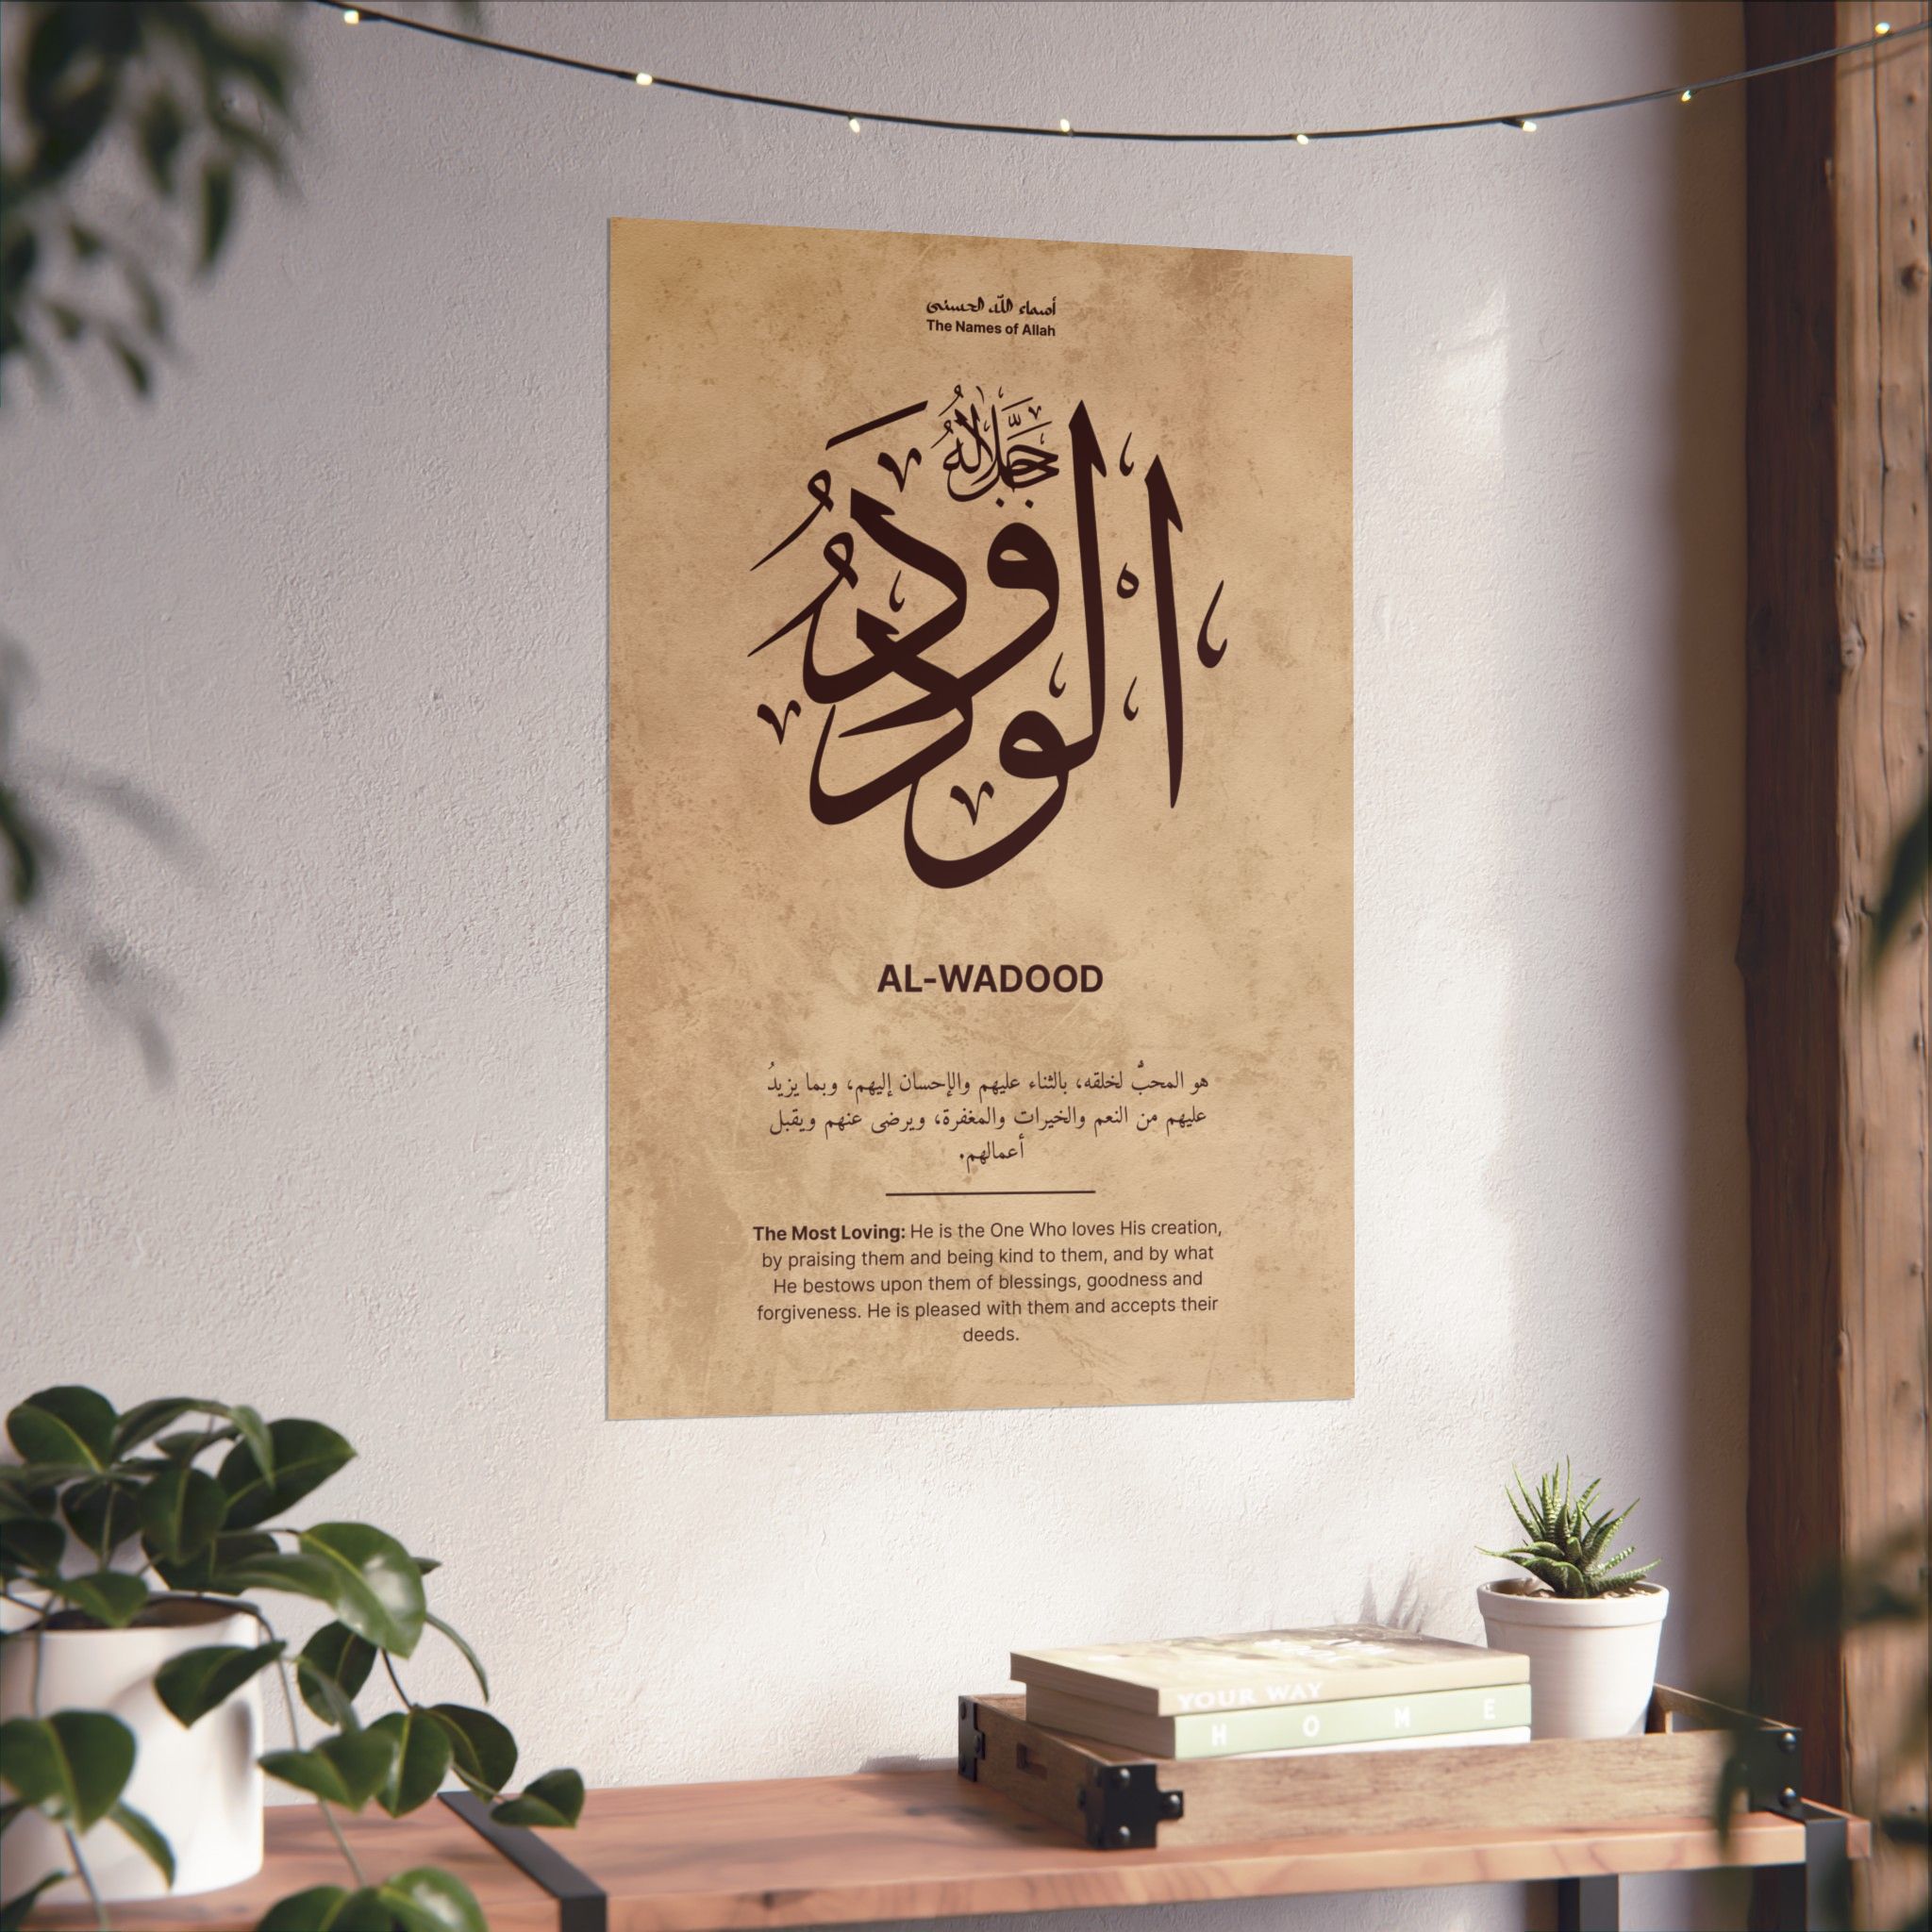 أسماء الله الحسنى
The Names of Allah
جَلَّ جَلَالُهُ
الْوَدُودُ
AL-WADOOD
هو المحبُّ لخلقه، بالثناء عليهم والإحسان إليهم، وبما يزيدُ
عليهم من النعم والخيرات والمغفرة، ويرضى عنهم ويقبل
أعمالهم.
The Most Loving: He is the One Who loves His creation,
by praising them and being kind to them, and by what
He bestows upon them of blessings, goodness and
forgiveness. He is pleased with them and accepts their
deeds.
YOUR WAY
HOME